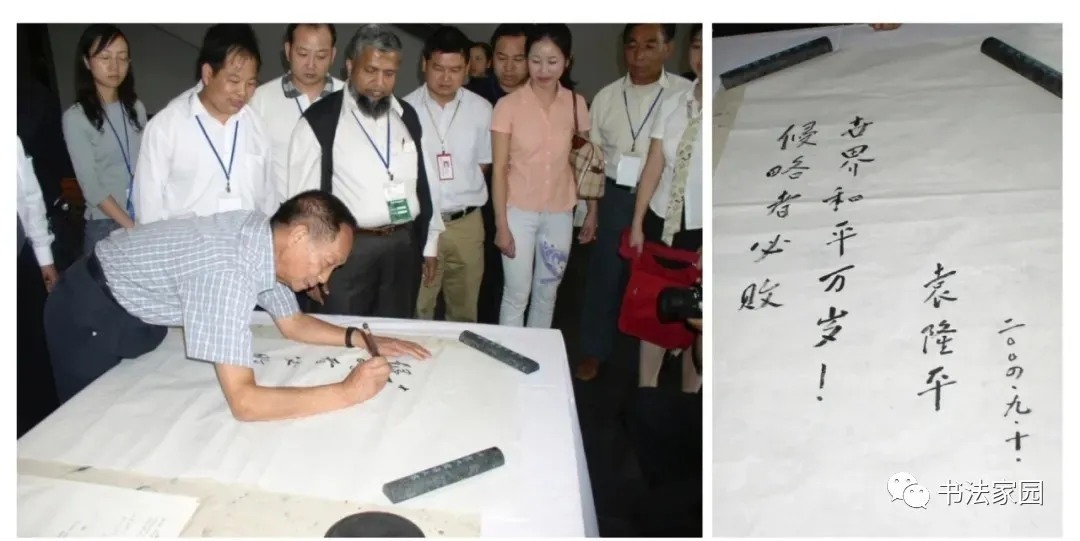 侵略者必败
世界和平万岁！
袁隆平
二〇〇四.九.十.
书法家园